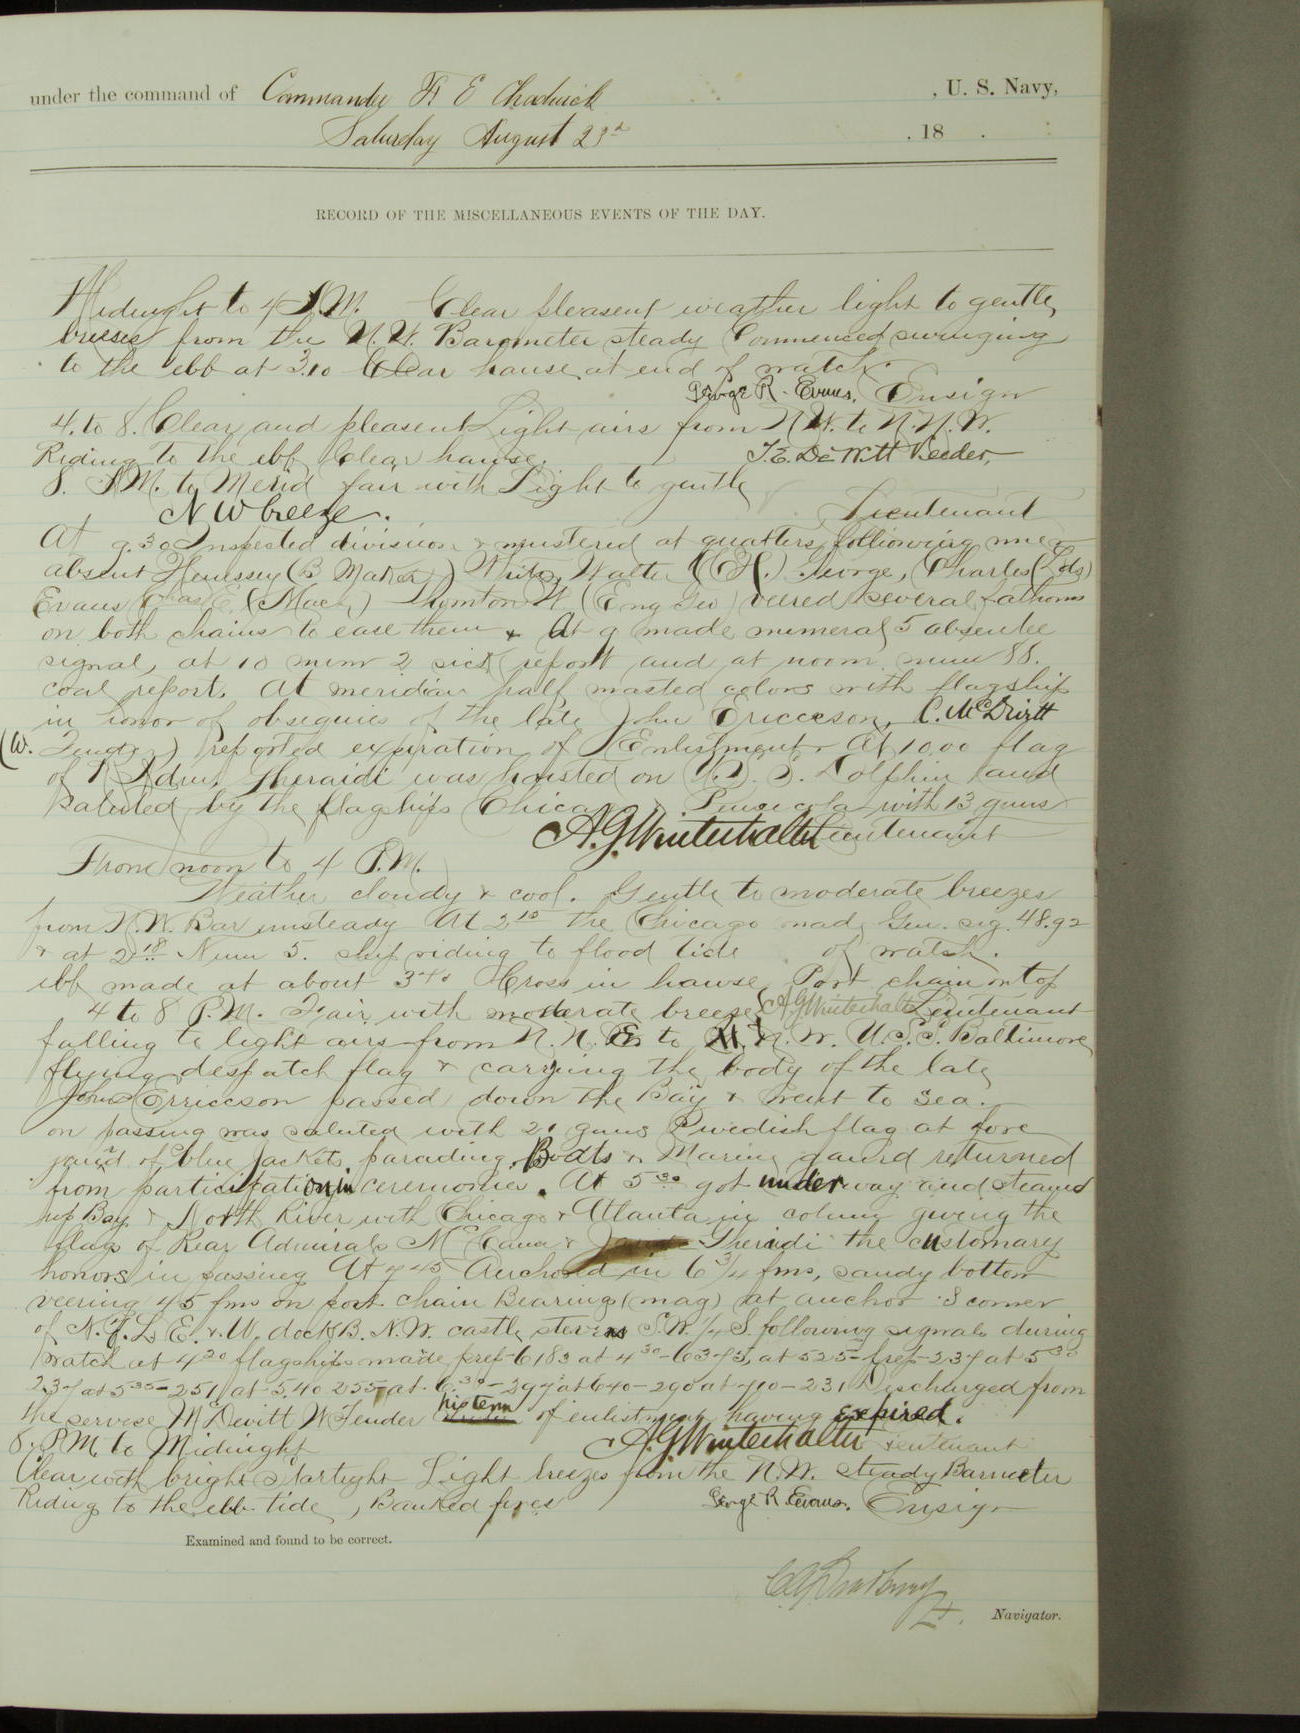 under the command of Commander F E Chadwick , U. S. Navy,
Saturday August 23d . 18 .
RECORD OF THE MISCELLANEOUS EVENTS OF THE DAY.
Midnight to 4 A.M. Clear pleasent weather light to gentle
breeses from the N.W. Barometer steady Commenced swinging
to the ebb at 3.10 Clear hause at end of watch.
George R. Evans, Ensign
4. to 8. Clear and pleasent Light airs from NW. to N.N.W.
Riding to the ebb Clear hause. T.E. DeWitt Veeder,
8. A.M. to Merid fair with Light to gentle
N W breeze. Lieutenant
At 9.30 Inspected division & mustered at quarters following men
absent Henessey (B Maker) Walter George, Charles (Lds)
Evans Chas E. (Mach) Thornton W (Eng Yeo) veered several fathoms
on both chains to ease them & At 9 made numeral 5 absentee
signal, at 10 num 2 sick report and at noon num 88.
coal report. At meridian half masted colors with flagship
in honor of obsequies of the late John Ericcson, C. McDivitt
(W. Tender) reported expiration of Enlistment. At 10.00 flag
of R Adm. Gheraidi was hoisted on U.S.S. Dolphin and
saluted by the flagships Chicago & Pensecola with 13 guns
A.G. Winterhalter Lieutenant
From noon to 4 P.M.
Weather cloudy & cool. Gentle to moderate breezes
from N.W. Bar unsteady At 2 15 the Chicago mad Gen. sig. 48.92
& at 2 18 Num 5. ship riding to flood tide of watch.
ebb made at about 3 40 Cross in hawse, Port chain on top
4 to 8 P.M. Fair with moderate breeze A.G Winterhalter Lieutenant
falling to light airs from N.N.E. to N.N.W. U.S.S. Baltimore
flying despatch flag & carrying the body of the late
John Erriccson passed down the Bay & went to sea.
on passing was saluted with 21 guns Swedish flag at fore
guard of blue Jackets parading. Boats & Marine guard returned
from participation in ceremonies. At 5 30 got under way and steamed
up Bay & North River with Chicago & Atlanta in colum giveng the
flags of Rear Admirals Gheridi the customary
honors in passing At 7 45 Anchored in 6 3/4 fms, sandy bottom
veering 45 fms on port chain Bearing (mag) at anchor S corner
of N.Y.L.E. & W. dock B. N.W. castle stevens S.W. 1/4 S. following signals during
watch at 4 20 flagships made pref-6183 at 4 30-6375, at 525-pref-237 at 5 30
237 at 5 35-251, at 5.40 255, at 6.30-297 at 640-290 at 710-231 Discharged from
the servese McDevitt W Tender his term of enlistment having expired.
8. P.M. to Midnight A.G. Winterhalter Lieutenant
Clear with bright Starlight Light breezes from the N.W. steady Barmeter
Riding to the ebb tide, Banked fires George R. Evans. Ensign
Examined and found to be correct.
Lt. Navigator.